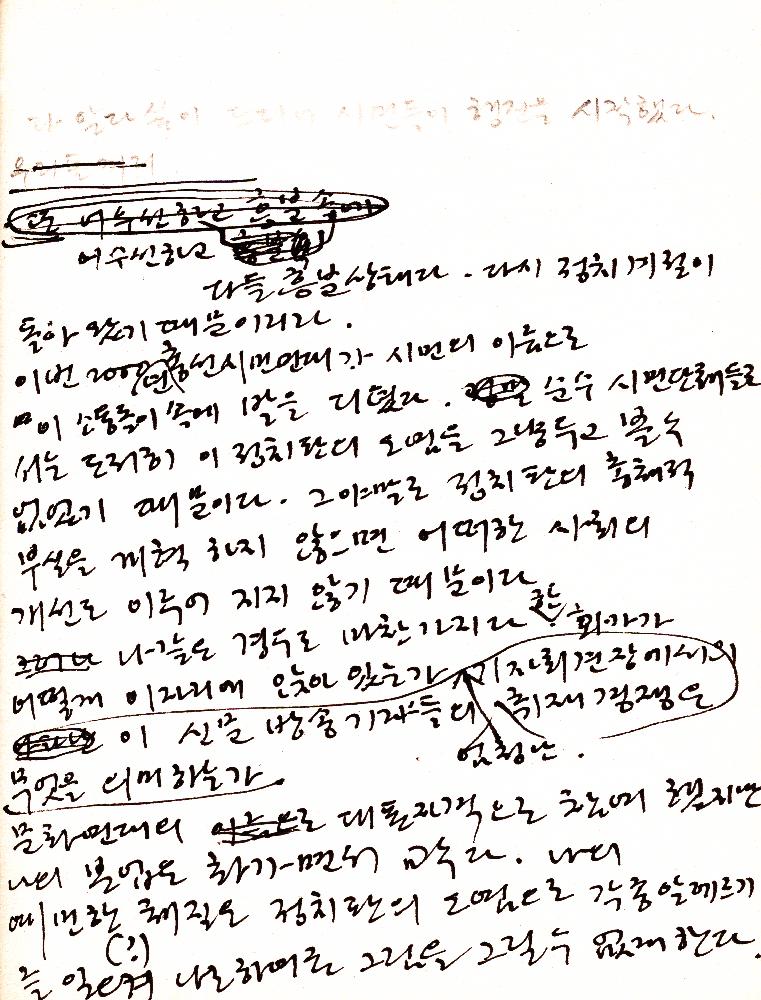 다 알다싶이 드디어 시민들이 행진을 시작했다.
어수선하고
다들 흥분상태다. 다시 정치계절이
돌아 왔기 때문이리라.
이번 2000년 총선시민연대가 시민의 이름으로
이 소용돌이 속에 발을 디뎠다. 순수 시민단체들로
서는 도저히 이 정치판의 오염을 그냥두고 볼 수
없었기 때문이다. 그야말로 정치판의 총체적
부실을 개혁 하지 않으면 어떠한 사회의
개선도 이루어 지지 않기 때문이다
나같은 경우도 마찬가지다 한 화가가
어떻게 이자리에 앉아 있는가 기자회견장에서의
이 신문 방송기자들의 취재경쟁은
엄청난.
무엇을 의미하는가.
문화연대의 대표자격으로 참여 했지만
나의 본업은 화가-면서 교수다. 나의
예민한 체질은 정치판의 오염으로 각종알레르기
(?)
를 일으켜 나로하여금 그림을 그릴 수 없게 한다.